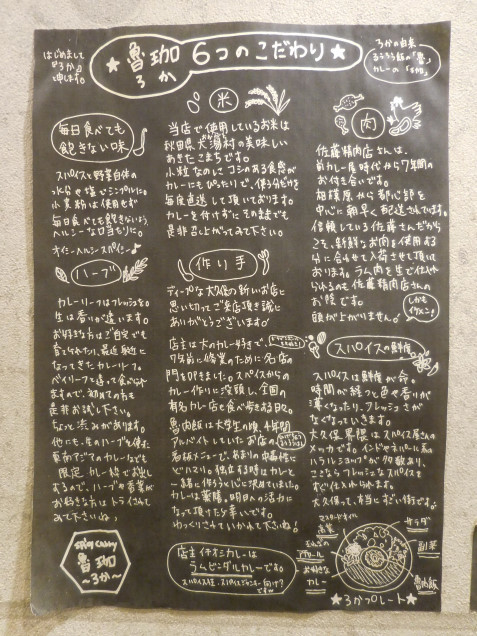 はじめまして
『ろか』と
申します。
★魯珈 6つのこだわり★
ろか
ろかの由来
るうろう飯の「魯」
カレーの「珈」
毎日食べても
飽きない味
スパイスや野菜自体の
水分や塩でシンプルに♪
小麦粉は使用せず
毎日食べても飽きないよう、
ヘルシーな口当たりに。
オイシーヘルシースパイシー♪
ハーブ
カレーリーフはフレッシュを♪
生は香りが違います。
お好きな方はご自宅でも
育てられたり、最近身近に
なってきたカレーリーフ。
ベイリーフと違って食べられ
ますので、初めての方も
是非お試し下さい。
ちょっと渋みがあります。
他にも、生のハーブを使った
夏のアジアのカレーなども
限定カレー枠でお出し
するので、ハーブや香菜が
お好きな方はトライさんして
みて下さいね♪
spicy curry
魯珈
〜ろか〜
米
当店で使用しているお米は
秋田県大潟村の美味しい
あきたこまちです。
小粒なのにコシのある食感が
カレーにもぴったりで、使う分だけを
毎度直送して頂いております。
カレーを付けずにそのままでも
是非召し上がってみて下さい。
作り手
ディープな大久保の新しいお店に
思い切ってご来店頂き誠に
ありがとうございます!
店主は大のカレー好きで、
7年前に修業のために名店の
門を叩きました。スパイスからの
カレー作りに没頭し、全国の
有名カレー店を食べ歩きする日々。
魯肉飯は大学生の頃、十年間
アルバイトしていたお店の
看板メニューで、あまりの中毒性に
どハマり。独立する時はカレーと
一緒に作ろうと心に決めていました。
カレーは薬膳。明日への活力に
なって頂けたら幸いです。
ゆっくりされていかれて下さいね♪
店主イチオシカレーは
ラムビンダルカレーです。
肉
佐藤精肉店さんは、
前カレー屋時代から7年間の
お付き合いです。
相模原から都心部を
中心に朝早く配送されています。
信頼している佐藤さんだから
こそ、新鮮なお肉を使用する
分に合わせて入荷させて頂いて
おります。ラム肉を生で仕入れ
られるのも佐藤精肉店さんの
お陰です。
頭が上がりません!
しかも
イケメン♪
スパイスの鮮度
スパイスは鮮度が命。
時間が経つと色や香りが
薄くなったり、フレッシュさが
なくなっていきます。
大久保界隈はスパイス屋さんの
メッカです。インドやネパール系の
ハラルショップが多数あり、
いつもフレッシュなスパイスを
すぐ仕入れられます。
大久保って、本当にすごい街です。
マスタードオイル
高菜
サラダ
副菜
アチャール
お好きな
カレー
魯肉飯
★ろかプレート★